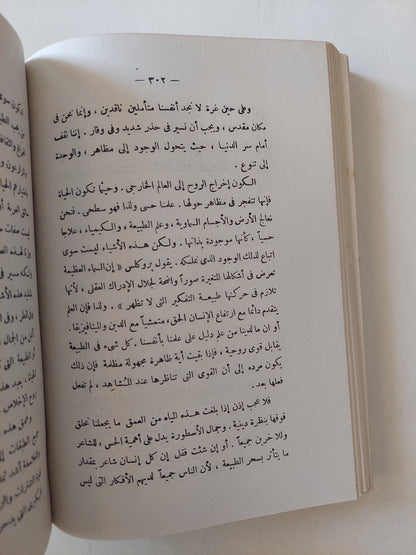 — ٣٠٢ —
وعلى حين غرة لا نجد أنفسنا متأملين ناقدين ، وإنما نحن فى
مكان مقدس ، ويجب أن نسير فى حذر شديد وفى وقار . إننا نقف
أمام سر الدنيا ، حيث يتحول الوجود إلى مظاهر ، والوحدة
إلى تنوع .
الكون إخراج الروح إلى العالم الخارجى . وحيثما تكون الحياة
فإنها تنفجر فى مظاهر حولها . علمنا حسى ولذا فهو سطحى . فنحن
نعالج الأرض والأجسام السماوية ، وعلم الطبيعة ، والكيمياء ، علاجا
حسياً ، كأنها موجودة بذاتها . ولكن هذه الأشياء ليست سوى
اتباع لذلك الوجود الذى نملكه . يقول بروكلس « إن السماء العظيمة
تعرض فى أشكالها المتغيرة صوراً واضحة لجلال الإدراك العقلى ، لأنها
تلازم فى حركتها طبيعة التفكير التى لا تظهر » . ولذا فإن العلم
يتقدم دائما مع ارتفاع الإنسان الحق ، متمشياً مع الدين والميتافيزيقا .
أو ان ما لدينا من علم دليل على علمنا بأنفسنا . كل شىء فى الطبيعة
يقابل قوى روحية ، فإذا بقيت أية ظاهرة مجهولة مظلمة فإن ذلك
يكون مرده إلى أن القوى التى تناظرها عند المُشاهِد ، لم تفعل
فعلها بعد .
فلا عجب إذن إذا بلغت هذه المياه من العمق ما يجعلنا نحلق
فوقها بنظرة دينية . وجمال الأسطورة يدل على أهمية الحس ، للشاعر
وللآخرين جميعاً . أو إن شئت فقل إن كل إنسان شاعر بمقدار
ما يتأثر بسحر الطبيعة ، لأن الناس جميعاً لديهم الأفكار التى ليس